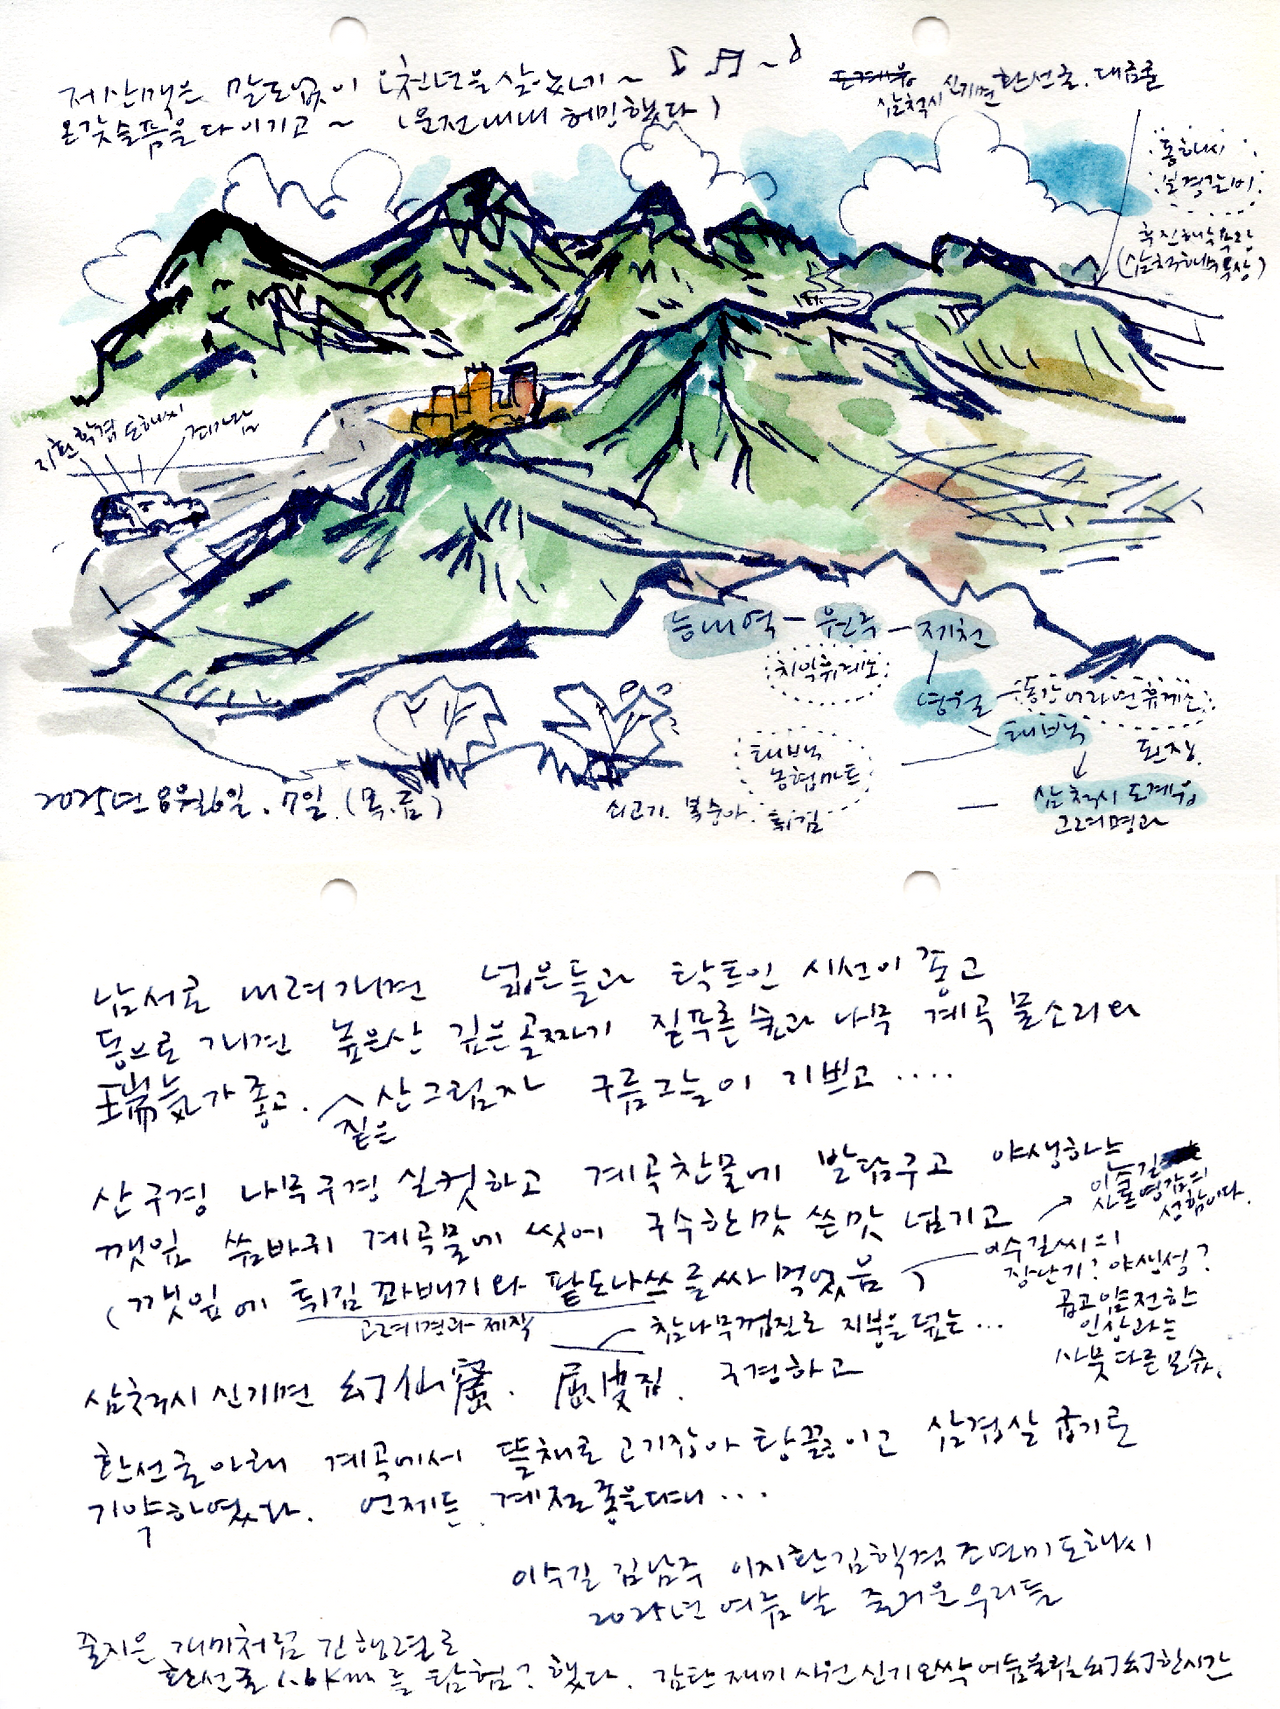 저 산맥은 말도 없이 오천년을 살았네~
온갖 슬픔을 다 이기고~ (운전내내 허밍했다)
삼척시 신기면 환선굴. 대금굴
동해시
(삼척해수욕장)
지환 학겸 도해씨
능내역 - 원주 - 제천
치악휴게소
영월 -
태백
태백
농협마트
쇠고기. 복숭아. 튀김
삼척시 도계읍
고려명과
2025년 8월 6일. 7일. (목.금)
남서로 내려가면 넓은 들과 탁트인 시선이 좋고
동으로 가면 높은산 깊은 골짜기 짙푸른 숲과 나무 계곡 물소리와
瑞氣가 좋고. 짙은 산그림자 구름그늘이 기쁘고 ....
산구경 나무구경 실컷하고 계곡찬물에 발담구고 야생하는
깻잎 씀바귀 계곡물에 씻어 구수한맛 쓴맛 넘기고
(깻잎에 튀김 꽈배기와 팥도나쓰를 싸먹었음)
이수길씨의
장난기? 야생성?
곱고 얌전한
인상과는
사뭇 다른 모습.
참나무껍질로 지붕을 덮는...
삼척시 신기면 幻仙窟. 屈皮집. 구경하고
환선굴 아래 계곡에서 뜰채로 고기잡아 탕끓이고 삼겹살 굽기로
기약하였다. 언제든. 계절 좋을 때...
이수길 김남주 이지환 김학겸 조연미 도해씨
2025년 여름날 즐거운 우리들
줄지은 개미처럼 긴 행렬로
환선굴 1.6Km를 탐험? 했다. 감탄 재미 시원 신기 오싹 어둠 불빛 幻幻한시간